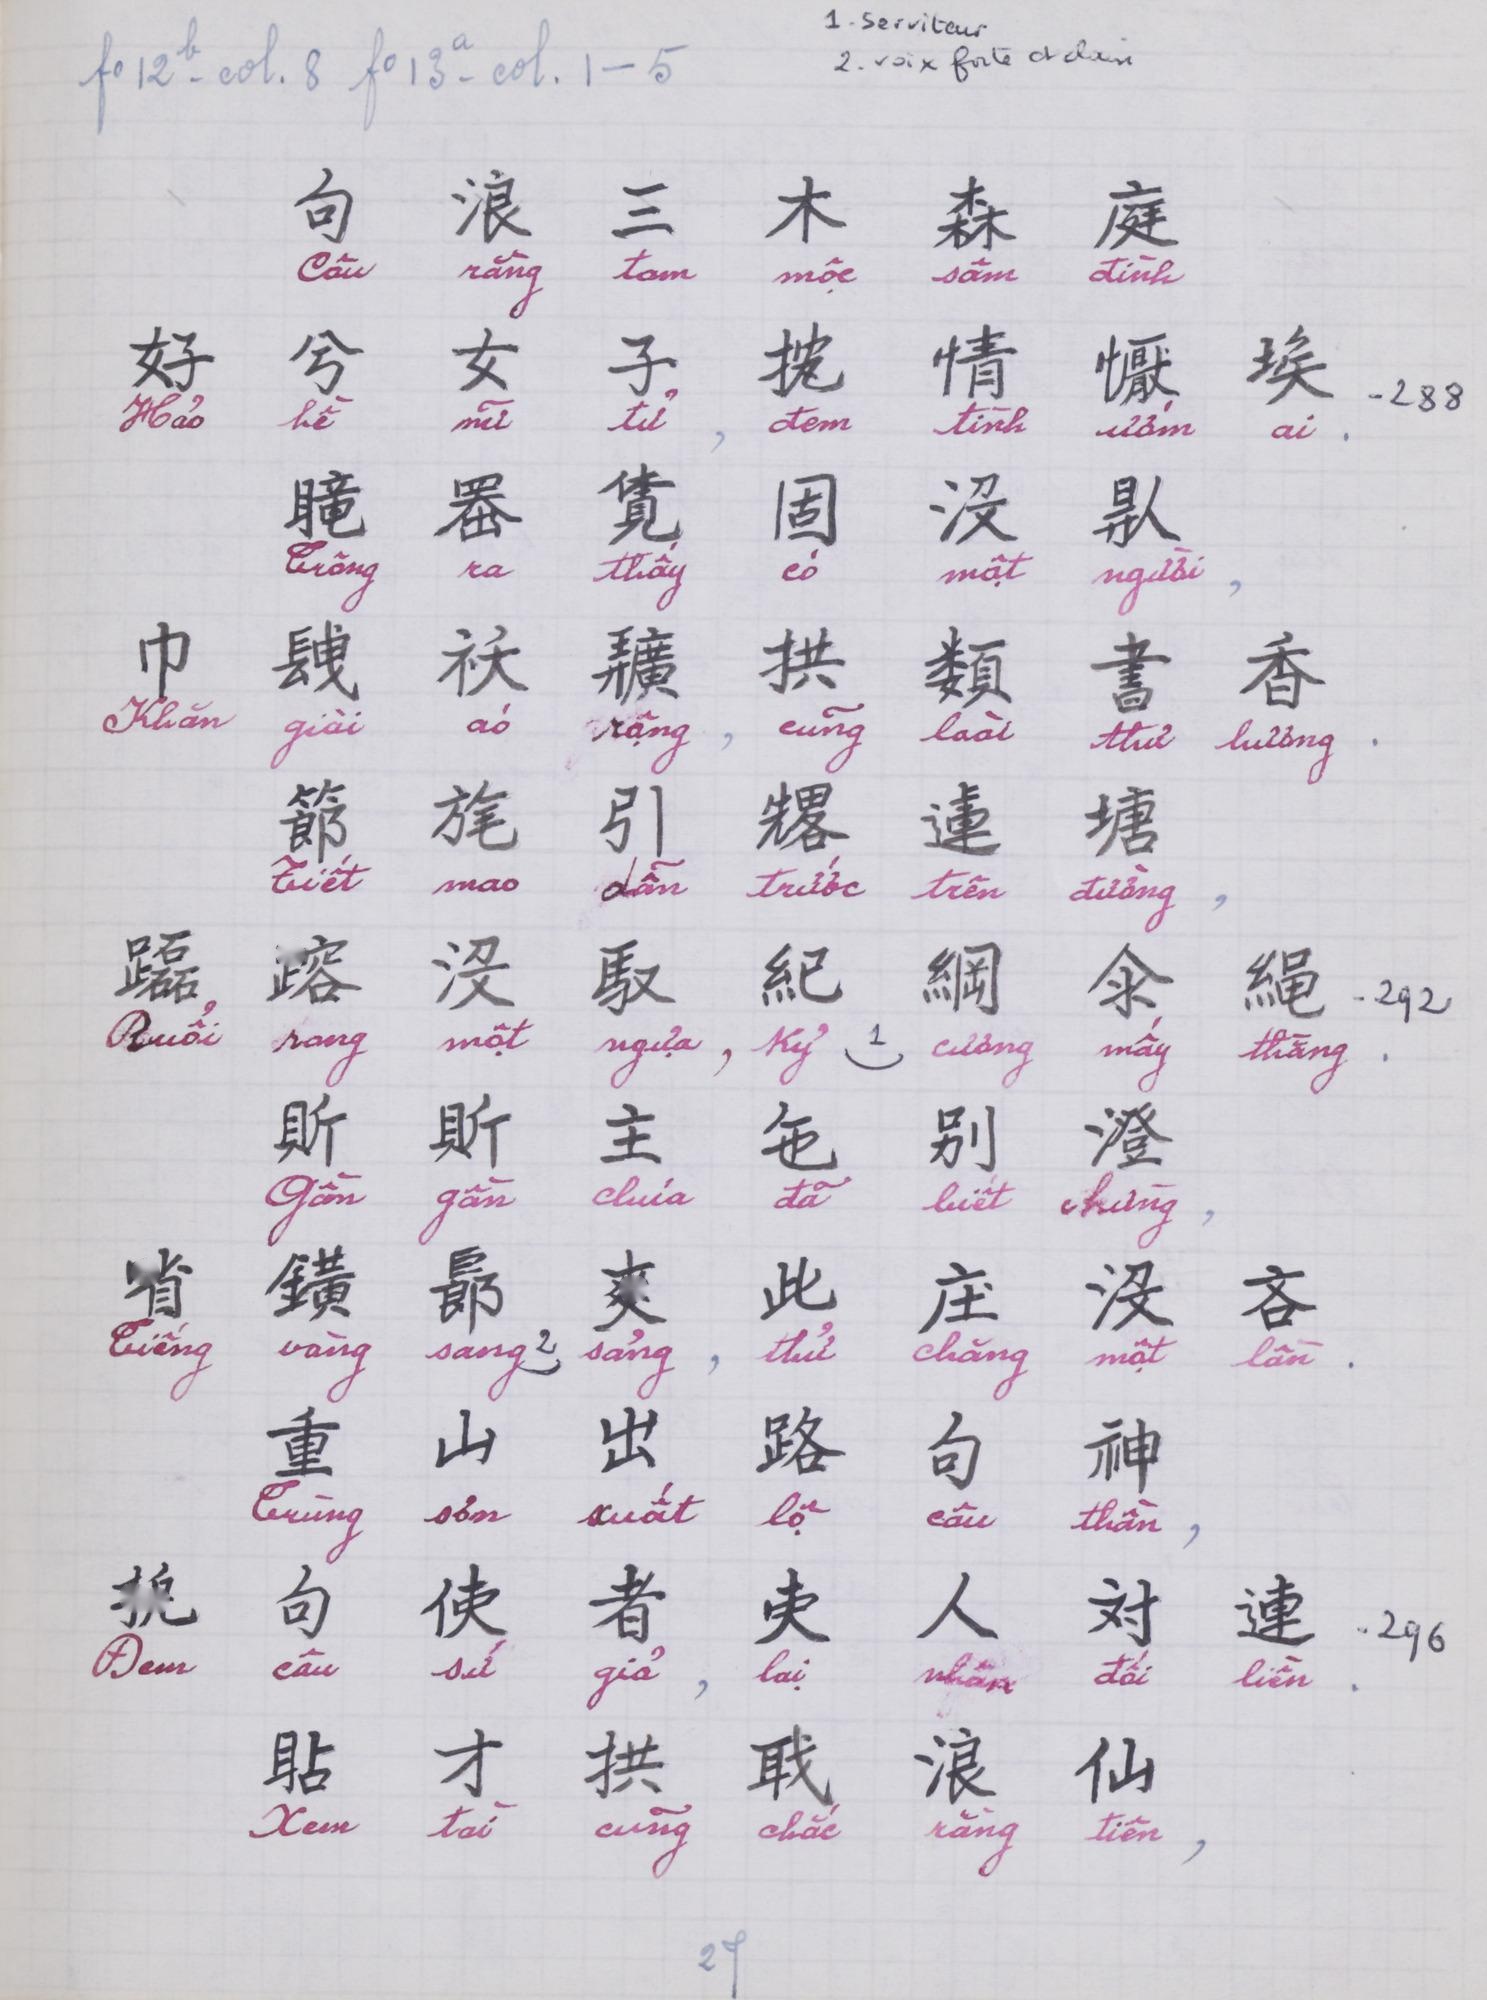 fº 12ᵇ - col. 8 fº 13ᵃ - col. 1 – 5
1. Serviteur
2. voix forte et clair
句 浪 三 木 森 庭
Câu rằng tam mộc sâm đình
好 兮 女 子 㧅 情 懨 埃 - 288
Hảo hề nữ tử, đem tình ướm ai.
𥊣 𠚢 𧡊 固 没 𠊚
Trông ra thấy có một người,
巾 𨱽 襖 𢌌 拱 類 書 香
Khăn giài aó rộng, cũng loài thư hương.
節 旄 引 𠓀 蓮 塘
Tiết mao dẫn trước trên đường,
𨇒 蹡 没 馭 紀 綱 氽 繩 - 292
Ruổi rong một ngựa, kỷ 1 cương mấy thằng.
𧵆 𧵆 主 㐌 别 澄
Gần gần chúa đã biết chừng,
㗂 鐄 郎 爽 此 庄 没 吝
Tiếng vàng sang 2 sảng, thử chăng một lần.
重 山 出 路 句 神
Trùng sơn xuất lộ câu thần,
㧅 句 使 者 吏 人 対 連 - 296
Đem câu sứ giả, lại nhân đối liền.
貼 才 拱 聀 浪 仙
Xem tài cũng chắc rằng tiên,
27